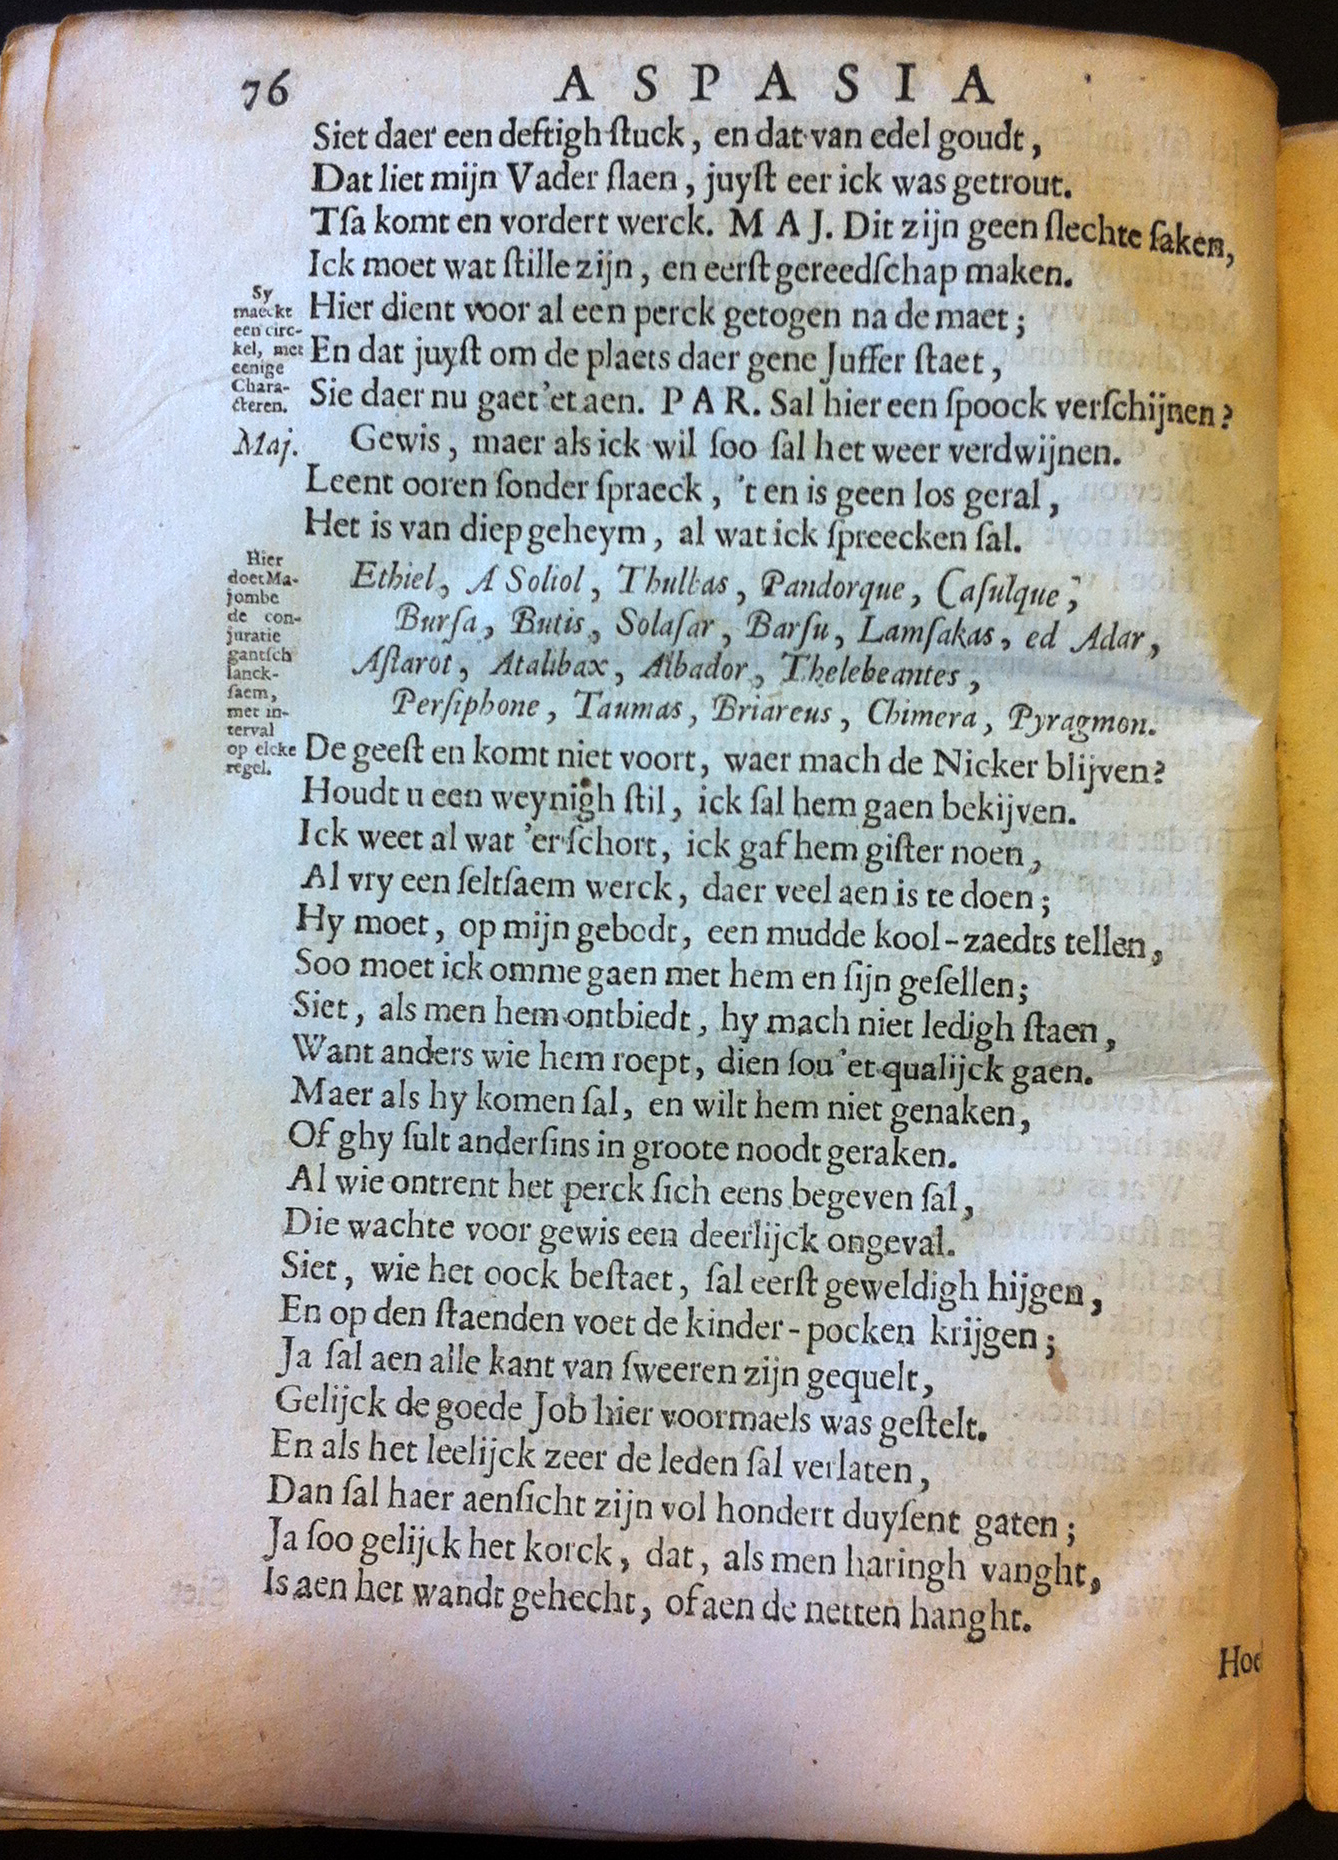 76 ASPASIA
Siet daer een deftigh stuck, en dat van edel goudt,
Dat liet mijn Vader slaen, juyst eer ick was getrout.
Tsa komt en vordert werck. MAJ. Dit zijn geen slechte saken,
Ick moet wat stille zijn, en eerst gereedschap maken.
Sy
maeckt
een circ-
kel, met
eenige
Chara-
cteren.
Hier dient voor al een perck getogen na de maet;
En dat juyst om de plaets daer gene Juffer staet,
Sie daer nu gaet 'et aen. PAR. Sal hier een spoock verschijnen?
Maj. Gewis, maer als ick wil soo sal het weer verdwijnen.
Leent ooren sonder spraeck, 't en is geen los geral,
Het is van diep geheym, al wat ick spreecken sal.
Hier
doet Ma-
jombe
de con-
juratie
gantsch
lanck-
saem,
met in-
terval
op elcke
regel.
Ethiel, A Soliol, Thulbas, Pandorque, Casulque,
Bursa, Butis, Solasar, Barsu, Lamsakas, ed Adar,
Astarot, Atalibax, Albador, Thelebeantes,
Persiphone, Taumas, Briareus, Chimera, Pyragmon.
De geest en komt niet voort, waer mach de Nicker blijven?
Houdt u een weynigh stil, ick sal hem gaen bekijven.
Ick weet al wat 'er schort, ick gaf hem gister noen,
Al vry een seltsaem werck, daer veel aen is te doen;
Hy moet, op mijn gebodt, een mudde kool-zaedts tellen,
Soo moet ick omme gaen met hem en sijn gesellen;
Siet, als men hem ontbiedt, hy mach niet ledigh staen,
Want anders wie hem roept, dien sou 'et qualijck gaen.
Maer als hy komen sal, en wilt hem niet genaken,
Of ghy sult andersins in groote noodt geraken.
Al wie ontrent het perck sich eens begeven sal,
Die wachte voor gewis een deerlijck ongeval.
Siet, wie het oock bestaet, sal eerst geweldigh hijgen,
En op den staenden voet de kinder-pocken krijgen;
Ja sal aen alle kant van sweeren zijn gequelt,
Gelijck de goede Job hier voormaels was gestelt.
En als het leelijck zeer de leden sal verlaten,
Dan sal haer aensicht zijn vol hondert duysent gaten;
Ja soo gelijck het korck, dat, als men haringh vanght,
Is aen het wandt gehecht, of aen de netten hanght.
Hoe